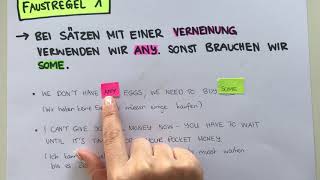 FAUSTREGEL 1
→ BEI SÄTZEN MIT EINER VERNEINUNG
VERWENDEN WIR ANY. SONST BRAUCHEN WIR
SOME.
• WE DON'T HAVE ANY EGGS, WE NEED TO BUY SOME
(Wir haben keine müssen einige kaufen)
• I CAN'T GIVE MONEY NOW - YOU HAVE TO WAIT
UNTIL IT'S YOUR POCKET MONEY.
(Ich musst warten
bis es